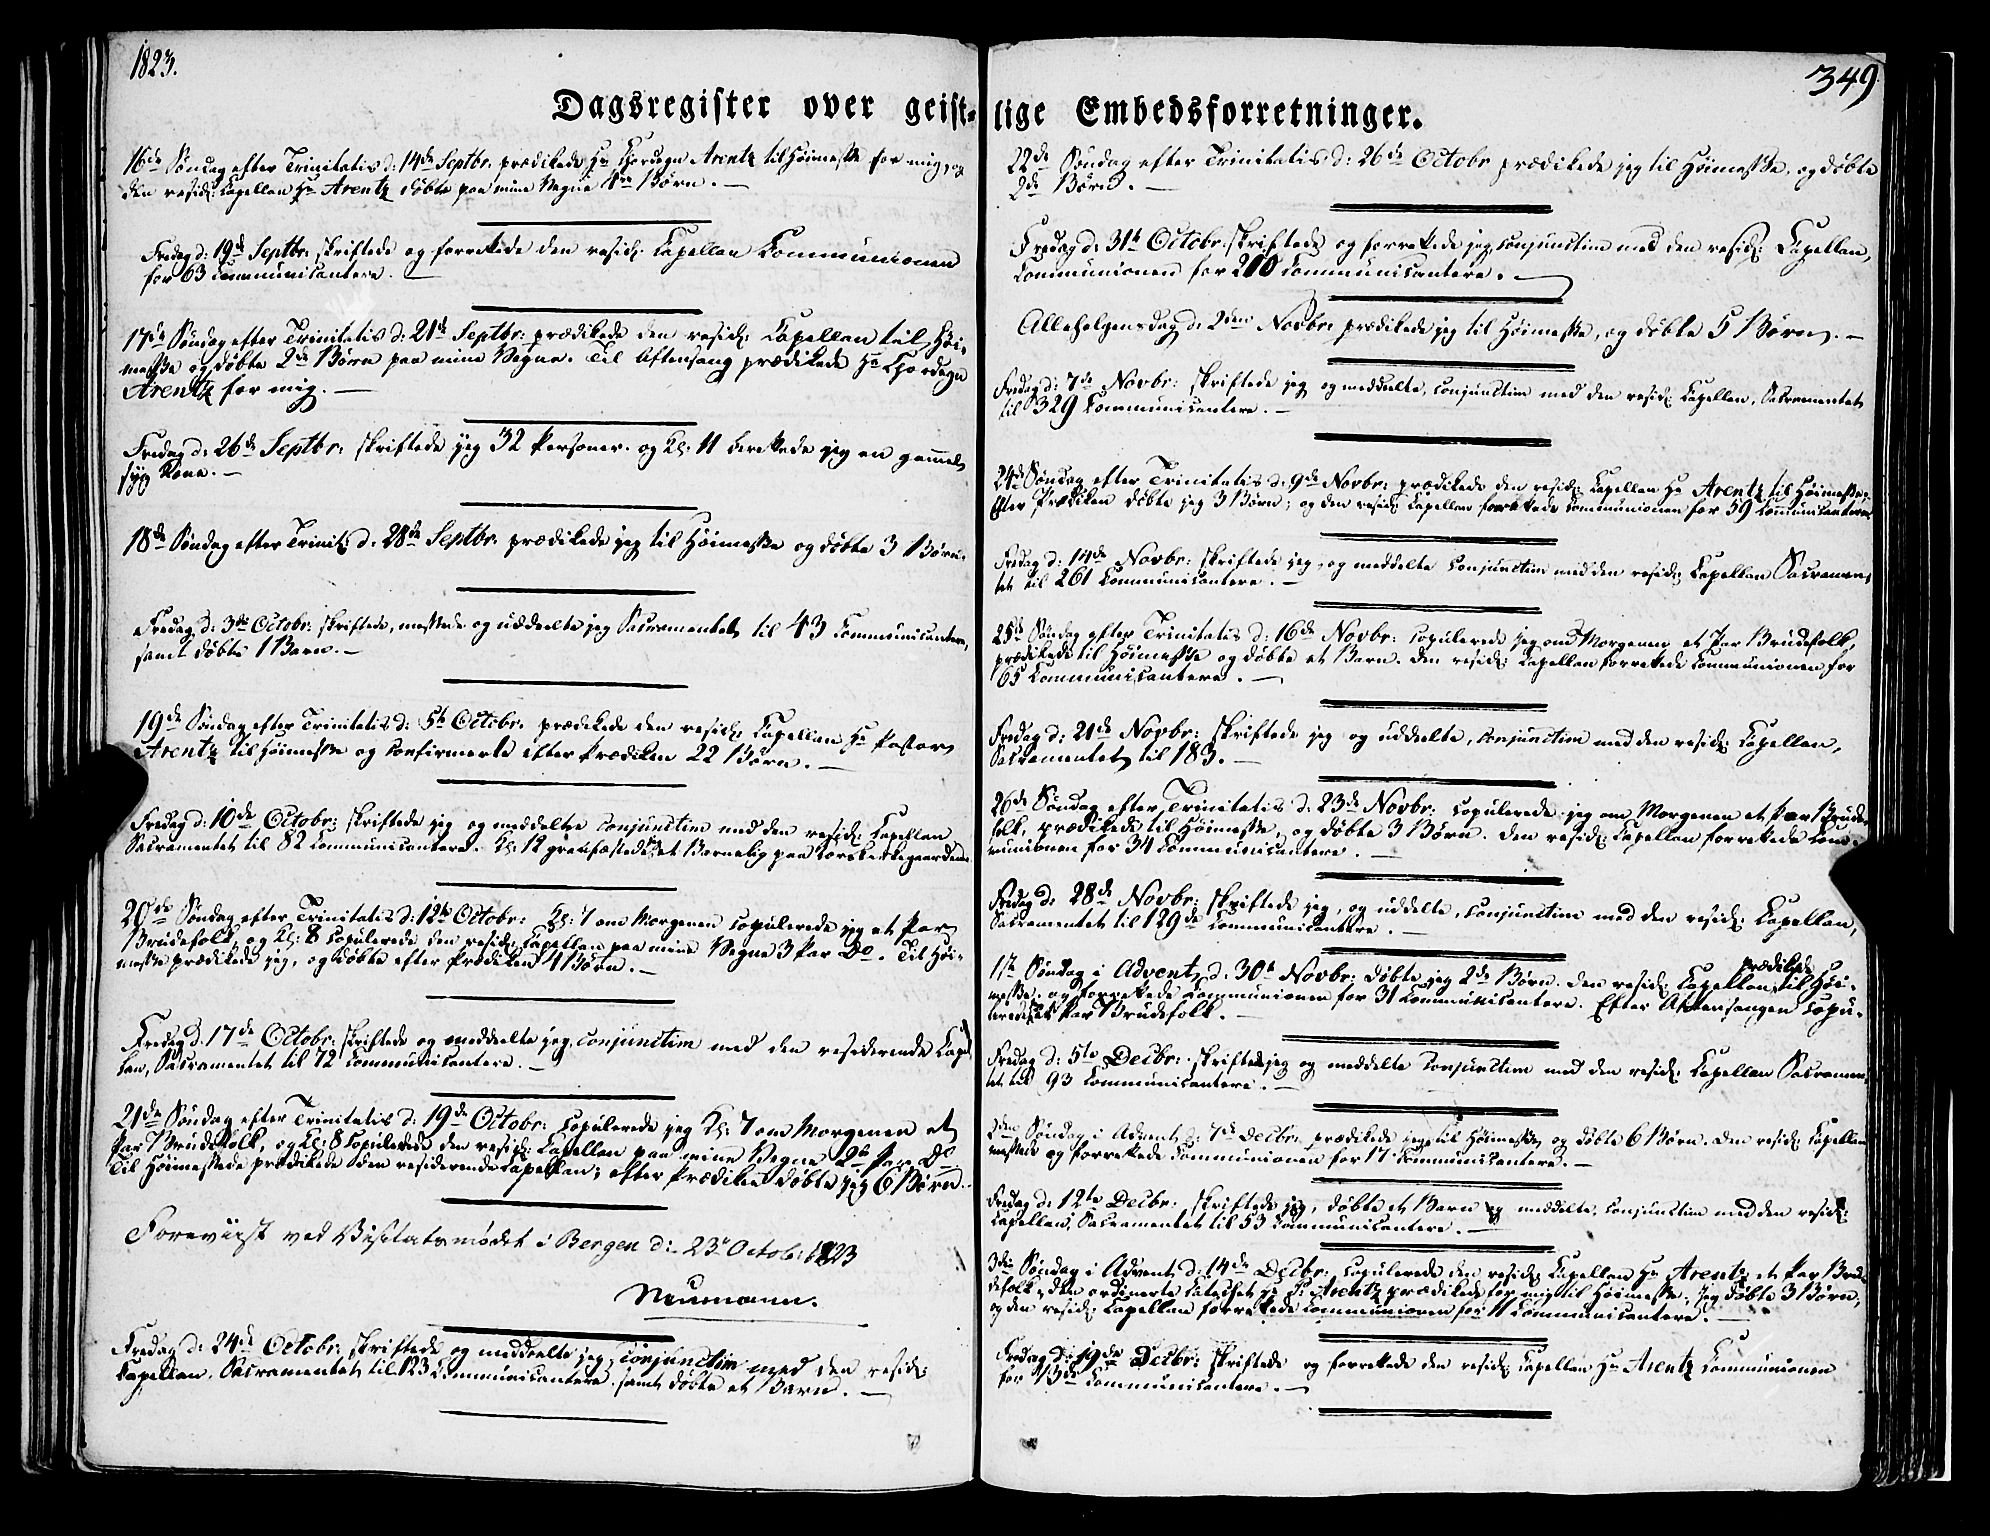 1823.
349
Dagsregister over geist-lige Embedsforretninger.
16de Søndag efter Trinitatis d: 14de Septbr: prædikede Hr Chordegn Arentz til Høimesse for mig, og
den resid: Capellan Hr Arentz døbte paa mine Vegne Børn. —
Fredag d: 19de Septbr: skriftede og forrettede den resid: Capellan Communionen
for 63 Communicantere. —
17de Søndag efter Trinitatis d: 21de Septbr: prædikede den resid: Capellan til Høi-
messe og døbte 2de Børn paa mine Vegne. Til Aftensang prædikede Hr Chordegn
Arentz for mig. —
Fredag d: 26de Septbr: skriftede jeg 32 Personer. og Kl: 11 berettede jeg en gammel
syg Kone. —
18de Søndag efter Trinit: d: 28de Septbr: prædikede jeg til Høimesse og døbte 3 Børn.
Fredag d: 3die Octobr: skriftede, messede og uddeelte jeg Sacramentet til 43 Communicantere,
samt døbte 1 Barn. —
19de Søndag efter Trinitatis d: 5te Octobr: prædikede den resid: Capellan Hr Pastor
Arentz til Høimesse og confirmerte efter Prædiken 22 Børn. —
Fredag d: 10de Octobr: skriftede jeg og meddelte conjunctim med den resid: Capellan
Sacramentet til 82 Communicantere. Kl: 12 gravfæstede et Barnelig paa Korskirkegaarden.
20de Søndag efter Trinitatis d: 12te Octobr: Kl: 7 om Morgenen copulerede jeg et Par
Brudefolk, og Kl: 8 copulerede den resid: Capellan paa mine Vegne 3 Par Do. Til Høi-
messe prædikede jeg, og døbte efter Prædiken 4 Børn. —
Fredag d. 17de Octobr: skriftede og meddeelte jeg, conjunctim med den residerende Capel-
lan, Sacramentet til 72 Communicantere. —
21de Søndag efter Trinitatis d: 19de Octobr: copulerede jeg Kl: 7 om Morgenen et
Par Brudefolk, og Kl: 8 copulerede den resid: Capellan paa mine Vegne 2de Par Do
Til Høimesse prædikede den residerende Capellan; efter Prædiken døbte jeg 6 Børn. —
Foreviist ved Visitatsmødet i Bergen d: 23de Octob: 1823
Neumann.
Fredag d: 24de Octobr: skriftede og meddeelte jeg, conjunctim med den resid:
Capellan, Sacramentet til 123 Communicantere, samt døbte et Barn. —
22de Søndag efter Trinitatis d: 26de Octobr prædikede jeg til Høimesse, og døbte
2de Børn. —
Fredag d: 31te Octobr: skriftede og forrettede jeg conjunctim med den resid: Capellan,
Communionen for 210 Communicantere. —
Allehelgensdag d: 2den Novbr: prædikede jeg til Høimesse, og døbte 5 Børn. —
Fredag d: 7de Novbr: skriftede jeg og meddeelte, conjunctim med den resid: Capellan, Sacramentet
til 329 Communicantere. —
24de Søndag efter Trinitatis d: 9de Novbr: prædikede den resid: Capellan Hr Arentz til Høimesse.
Efter Prædiken døbte jeg 3 Børn; og den resid: Capellan forrettede Communionen for 59 Communicantere
Fredag d: 14de Novbr: skriftede jeg, og meddelte conjunctim med den resid: Capellan Sacramen-
tet til 261 Communicantere. —
25de Søndag efter Trinitatis d: 16de Novbr: copulerede jeg om Morgenen et Par Brudefolk,
prædikede til Høimesse og døbte et Barn. Den resid: Capellan forrettede Communionen for
65 Communicantere. —
Fredag d: 21de Novbr: skriftede jeg og uddelte, conjunctim med den resid: Capellan,
Sacramentet til 183. —
26de Søndag efter Trinitatis d: 23de Novbr: copulerede jeg om Morgenen et Par Brude-
folk, prædikede til Høimesse, og døbte 3 Børn. Den resid: Capellan forrettede Com-
munionen for 34 Communicantere. —
Fredag d: 28de Novbr: skriftede jeg, og uddelte, conjunctim med den resid: Capellan,
Sacramentet til 129de Communicantere. —
1te Søndag i Advent d: 30te Novbr: døbte jeg 2de Børn. Den resid: Capellan prædikede til Høi-
messe, og forrettede Communionen for 31 Communicantere. Efter Aftensangen copu-
leredes et Par Brudefolk. —
Fredag d: 5te Decbr: skriftede jeg og meddelte conjunctim med den resid: Capellan Sacramen-
tet til 93 Communicantere. —
2den Søndag i Advent d: 7de Decbr: prædikede jeg til Høimesse og døbte 6 Børn. Den resid: Capellan
messede og forrettede Communionen for 17 Communicantere. —
Fredag d: 12te Decbr: skriftede jeg, døbte et Barn og meddelte, conjunctim med den resid:
Capellan, Sacramentet til 53 Communicantere. —
3die Søndag i Advent d: 14de Decbr: copulerede den resid: Capellan Hr Arentz et Par Bru-
defolk, den ordinerte Catechet Hr Arentz prædikede for mig til Høimesse, jeg døbte 3 Børn,
og den resid: Capellan forrettede Communionen for 11 Communicantere. —
Fredag d: 19de Decbr: skriftede og forrettede den resid: Capellan Hr Arentz Communionen
for Communicantere. —